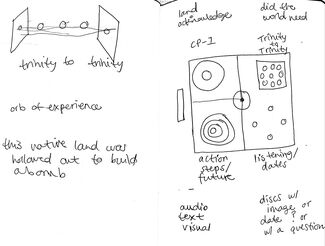 trinity to trinity
orb of experience
this native land was
hollowed out to build
a bomb
land
acknowledge
did the
world need
CP-1
Trinity
to
Trinity
action
steps/
future
listening/
dates
audio
text
visual
discs w/
image or
date ? or
w/ a question